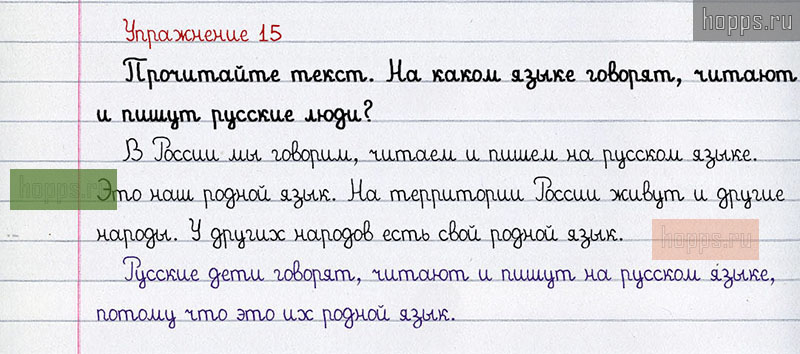 hopps.ru
Упражнение 15
Прочитайте текст. На каком языке говорят, читают
и пишут русские люди?
В России мы говорим, читаем и пишем на русском языке.
hopps.ru
Это наш родной язык. На территории России живут и другие
народы. У других народов есть свой родной язык.
hopps.ru
Русские дети говорят, читают и пишут на русском языке,
потому что это их родной язык.